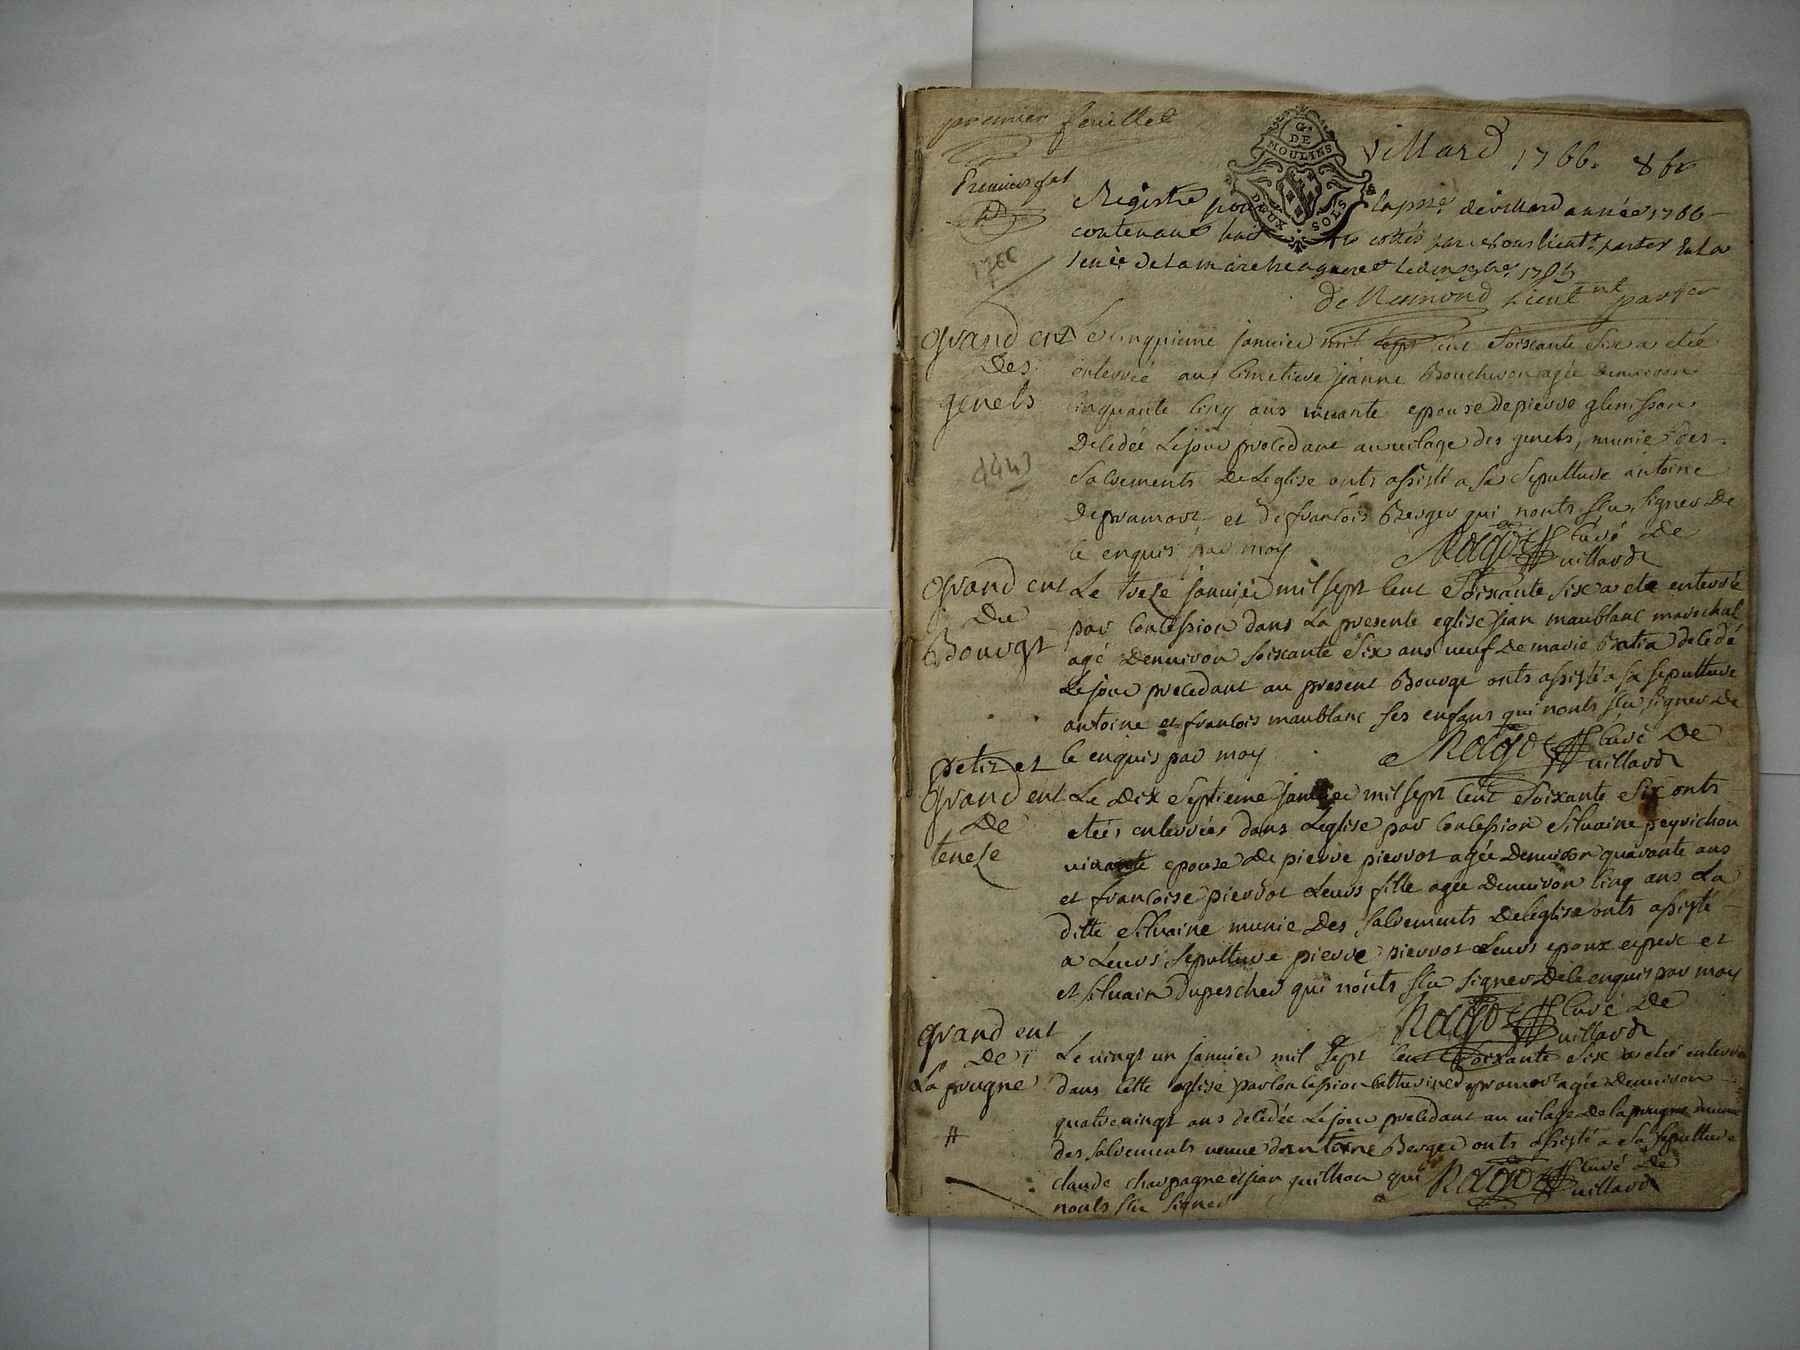 premier feuillet
G. DE MOULINS
DEUX SOLS
villard 1766. 8 f
Premier
1766
Registre pour la psse de villard année 1766
contenant huit cottés par nous lieutt parter en la
de la marche a gueret le onze xbre 1765
de Remond Lieutnt parter
grand ent
Des
genets
Le cinqpieme janvier mil sept cent soixante six a eteé
enterrée au cimetiere jeanne Boucheron agée denviron
cinquante cinq ans vivante epouse de pierre glenisson
decedée le jour precedant au vilage des genets, munie des
sacrements de L'eglise onts assisté a sa sepulture antoine
depramort et de francois Berger qui nonts sçu signer de
ce enquis par moy
Ragot curé de
villard
grand ent
Du
Bourgt
Le treze janvier mil sept cent soixante six a ete enterré
par concession dans la presente eglise jean maublanc marechal
agé denviron soixante six ans veuf de marie Ratia decedé
le jour precedant au present Bourgt onts assisté a sa sepulture
antoine et francois maublanc ses enfans qui nonts sçu signer de
ce enquis par moy
Ragot curé de
villard
petit et
grand ent
De
teneze
Le dix septieme janvier mil sept cent soixante six onts
etées enterrées dans L'eglise par concession silvaine peyrichou
vivante epouse de pierre pierrot agée denviron quarante ans
et francoise pierrot leurs fille agée denviron cinq ans la
ditte silvaine munie des sacrements de leglise onts assisté
a leurs sepulture pierre pierrot leurs epoux et pere et
et silvain dupescher qui nonts sçu signer de ce enquis par moy
Ragot curé de
villard
grand ent
De
La prugne
#
Le vingt un janvier mil sept cent soixante six a eteé enterrée
dans cette eglise par concession catherine depramort agée denviron
quatre vingt ans decedée le jour precedant au vilage de la prugne munie
des sacrements veuve dantoine Berger onts assisté a sa sepulture
claude champagne et jean guithon qui
nonts sçu signer
Ragot curé de
villard